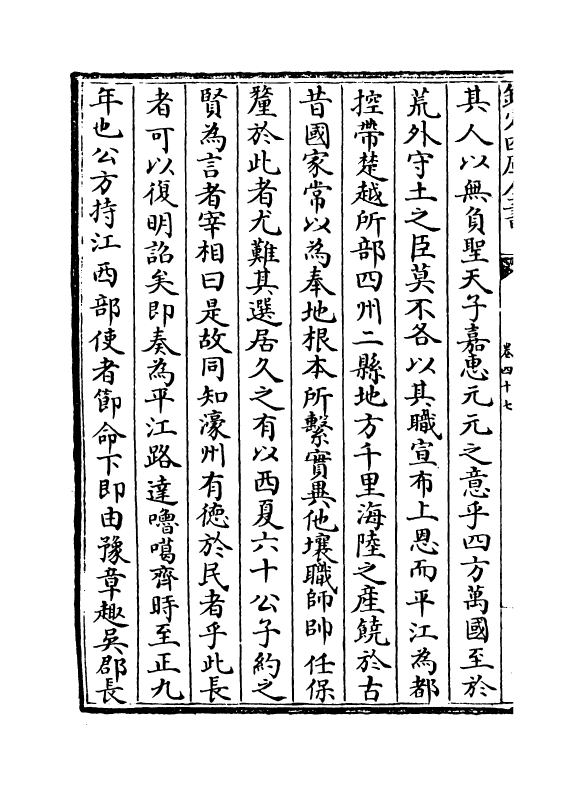 欽定四庫全書
卷四十七
其人以無負聖天子嘉惠元元之意乎四方萬國至於
荒外守土之臣莫不各以其職宣布上恩而平江為都
控帶楚越所部四州二縣地方千里海陸之産饒於古
昔國家常以為奉地根本所繫實異他壤職師帥任保
釐於此者尤難其選居久之有以西夏六十公子約之
賢為言者宰相曰是故同知濠州有德於民者乎此長
者可以復明詔矣即奏為平江路達嚕噶齊時至正九
年也公方持江西部使者節命下即由豫章趣吳郡長